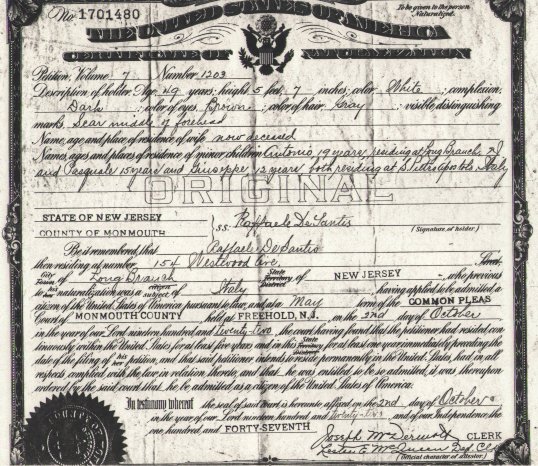 To be given to the person
Naturalized.
No 1701480
THE UNITED STATES OF AMERICA
CERTIFICATE OF NATURALIZATION
Petition, Volume 7 Number 1203
Description of holder: Age, 49 years; height, 5 feet, 7 inches; color, White; complexion,
Dark; color of eyes, Brown; color of hair, Gray; visible distinguishing
marks, Scar middle of forehead
Name, age and place of residence of wife now deceased
Names, ages and places of residence of minor children Antonio, 19 years residing at Long Branch, NJ
and Pasquale 15 years and Giuseppe 12 years both residing at S. Pietro Apostolo Italy
ORIGINAL
STATE OF NEW JERSEY
COUNTY OF MONMOUTH
SS: Raffaele DeSantis
(Signature of holder.)
Be it remembered, that Raffaele DeSantis
then residing at number 154 Westwood Ave. Street
City Town of Long Branch State Territory District of NEW JERSEY, who previous
to his naturalization was a citizen subject of Italy, having applied to be admitted a
citizen of the United States of America pursuant to law, and at a May term of the COMMON PLEAS
Court of MONMOUTH COUNTY held at FREEHOLD, N.J. on the 2nd day of October
in the year of our Lord nineteen hundred and twenty two the court having found that the petitioner had resided con-
tinuously within the United States for at least five years and in this State Territory for at least one year immediately preceding the
date of the filing of his petition, and that said petitioner intends to reside permanently in the United States, had in all
respects complied with the law in relation thereto, and that he was entitled to be so admitted, it was thereupon
ordered by the said court that he be admitted as a citizen of the United States of America.
In testimony whereof the seal of said court is hereunto affixed on the 2nd day of October
in the year of our Lord nineteen hundred and twenty-two and of our Independence the
one hundred and FORTY-SEVENTH
Joseph McDermott CLERK
Lester E McQueen Dep. Clk
(Official character of attestor.)